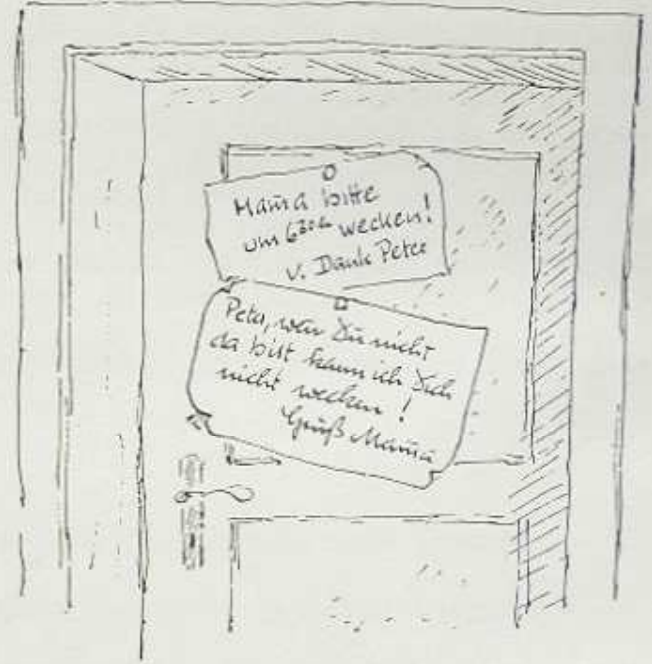 Mama bitte
um 6³⁰ʰ wecken!
v. Dank Peter
Peter, wen Du nicht
da bist kann ich Dich
nicht wecken!
Gruß Mama